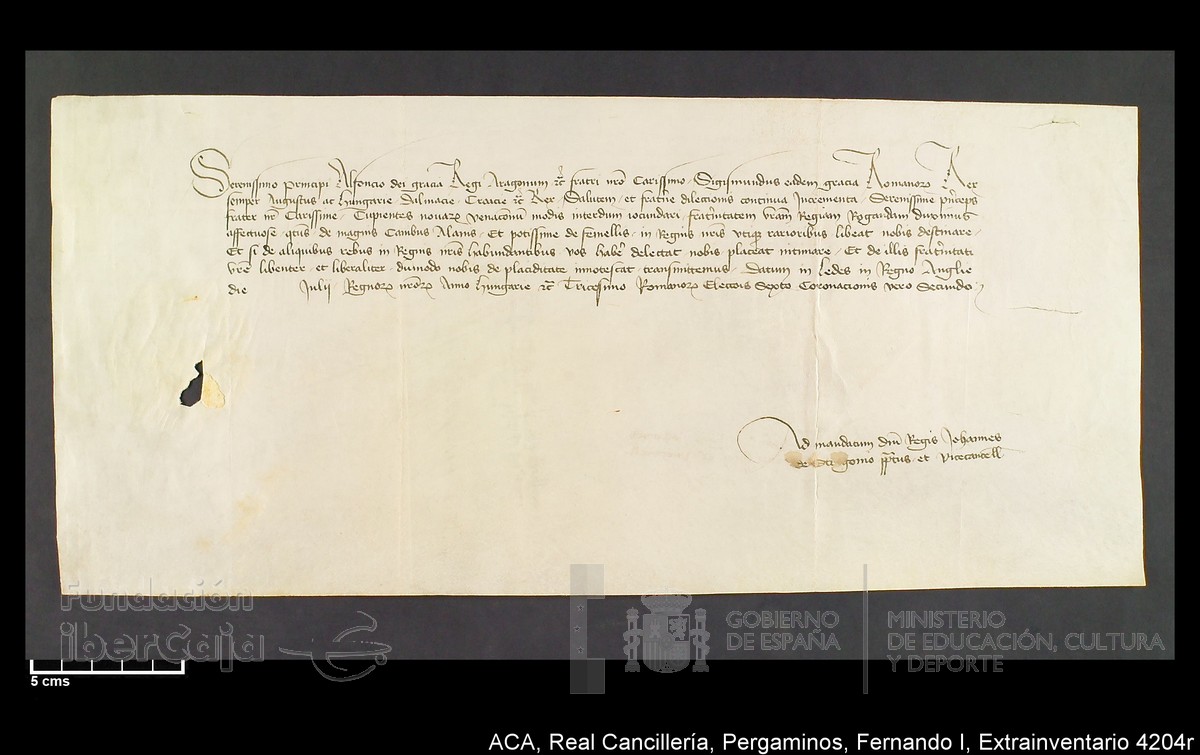 Serenissimo Principi Alfoncio dei gracia Regi Aragonum etc fratri nro Carissimo Sigismundus eadem gracia Romanorz Rex
semper Augustus ac Hungarie Dalmacie Croacie etc Rex Salutem et fratne dilectionis continua Incrementa Serenissime princeps
frater nr Carissime Cupientes novarz venacionum modis interdum iocundari fraternitatem vram Regiam Rogandam duximus
affectuose qtus de magnis Canibus Alanis Et potissime de femellis in Regnis nris utiqz rarioribus libeat nobis destinare
Et si de aliquibus rebus in Regnis nris habundantibus vos haber delectat nobis placeat intimare Et de illis fratrnitati
vre libenter et liberaliter dumodo nobis de placiditate innotescat transmittemus Datum in Ledes in Regno Anglie
die Julii Regnorz nrorz Anno Hungarie etc Tricesimo Romanorz Eleccois Sexto Coronacionis vero Secundo
Ad mandatum dni Regis Johannes
de Strigonio pptus et vicecancell
Fundación
iberCaja
GOBIERNO
DE ESPAÑA
MINISTERIO
DE EDUCACIÓN, CULTURA
Y DEPORTE
5 cms
ACA, Real Cancillería, Pergaminos, Fernando I, Extrainventario 4204r